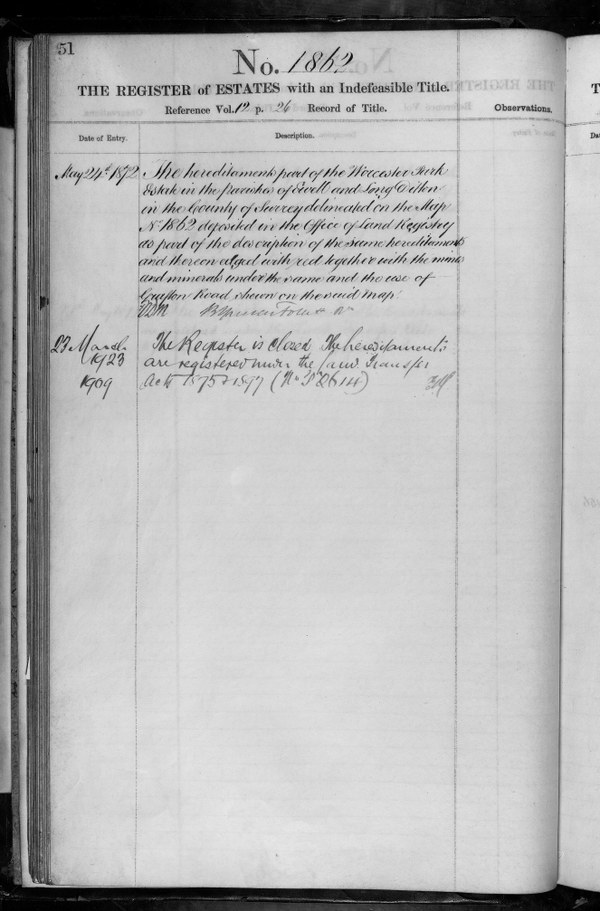 51
No. 1862
THE REGISTER of ESTATES with an Indefeasible Title.
Reference Vol. 12 p. 26 Record of Title.
Observations.
Date of Entry.
Description.
May 24th 1872
The hereditaments part of the Worcester Park
Estate in the parishes of Ewell and Long Ditton
in the County of Surrey delineated on the Map
No 1862 deposited in the Office of Land Registry
as part of the description of the same hereditaments
and thereon edged with red together with the mines
and minerals under the same and the use of
Road shewn on the said map.
23 March
1923
1909
The Register is closed The hereditaments
are registered under the Land Transfer
Acts 1875 & 1897